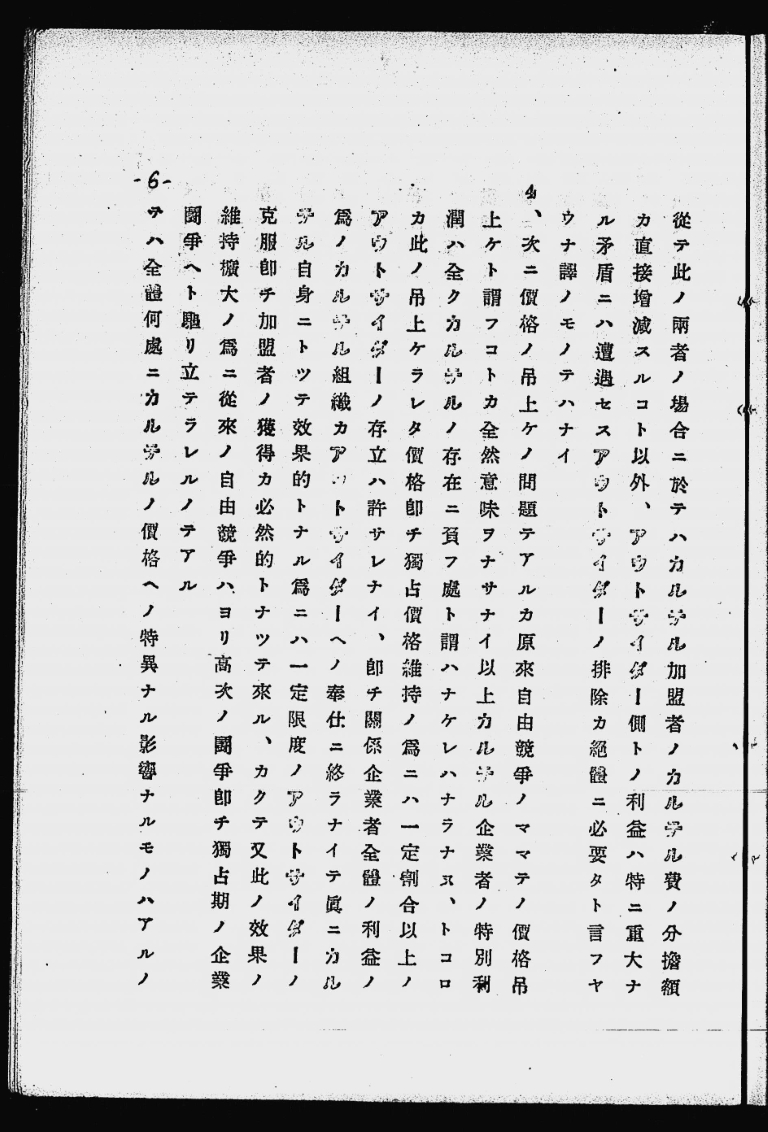 從テ此ノ兩者ノ場合ニ於テハカルテル加盟者ノカルテル費ノ分擔額
カ直接增減スルコト以外、アウトサイダー側トノ利益ハ特ニ重大ナ
ル矛盾ニハ遭遇セスアウトサイダーノ排除カ絕體ニ必要タト言フヤ
ウナ譯ノモノテハナイ
4、次ニ價格ノ吊上ケノ問題テアルカ原來自由競爭ノママテノ價格吊
上ケト謂フコトカ全然意味ヲナサナイ以上カルテル企業者ノ特別利
潤ハ全クカルテルノ存在ニ負フ處ト謂ハナケレハナラナヌ、トコロ
カ此ノ吊上ケラレタ價格卽チ獨占價格維持ノ爲ニハ一定割合以上ノ
アウトサイダーノ存立ハ許サレナイ、卽チ關係企業者全體ノ利益ノ
爲ノカルテル組織カアウトサイダーヘノ奉仕ニ終ラナイテ眞ニカル
テル自身ニトツテ效果的トナル爲ニハ一定限度ノアウトサイダーノ
克服卽チ加盟者ノ獲得カ必然的トナツテ來ル、カクテ又此ノ效果ノ
維持擴大ノ爲ニ從來ノ自由競爭ハヨリ高次ノ鬪爭卽チ獨占期ノ企業
鬪爭ヘト驅リ立テラレルノテアル
テハ全體何處ニカルテルノ價格ヘノ特異ナル影響ナルモノハアルノ
-6-